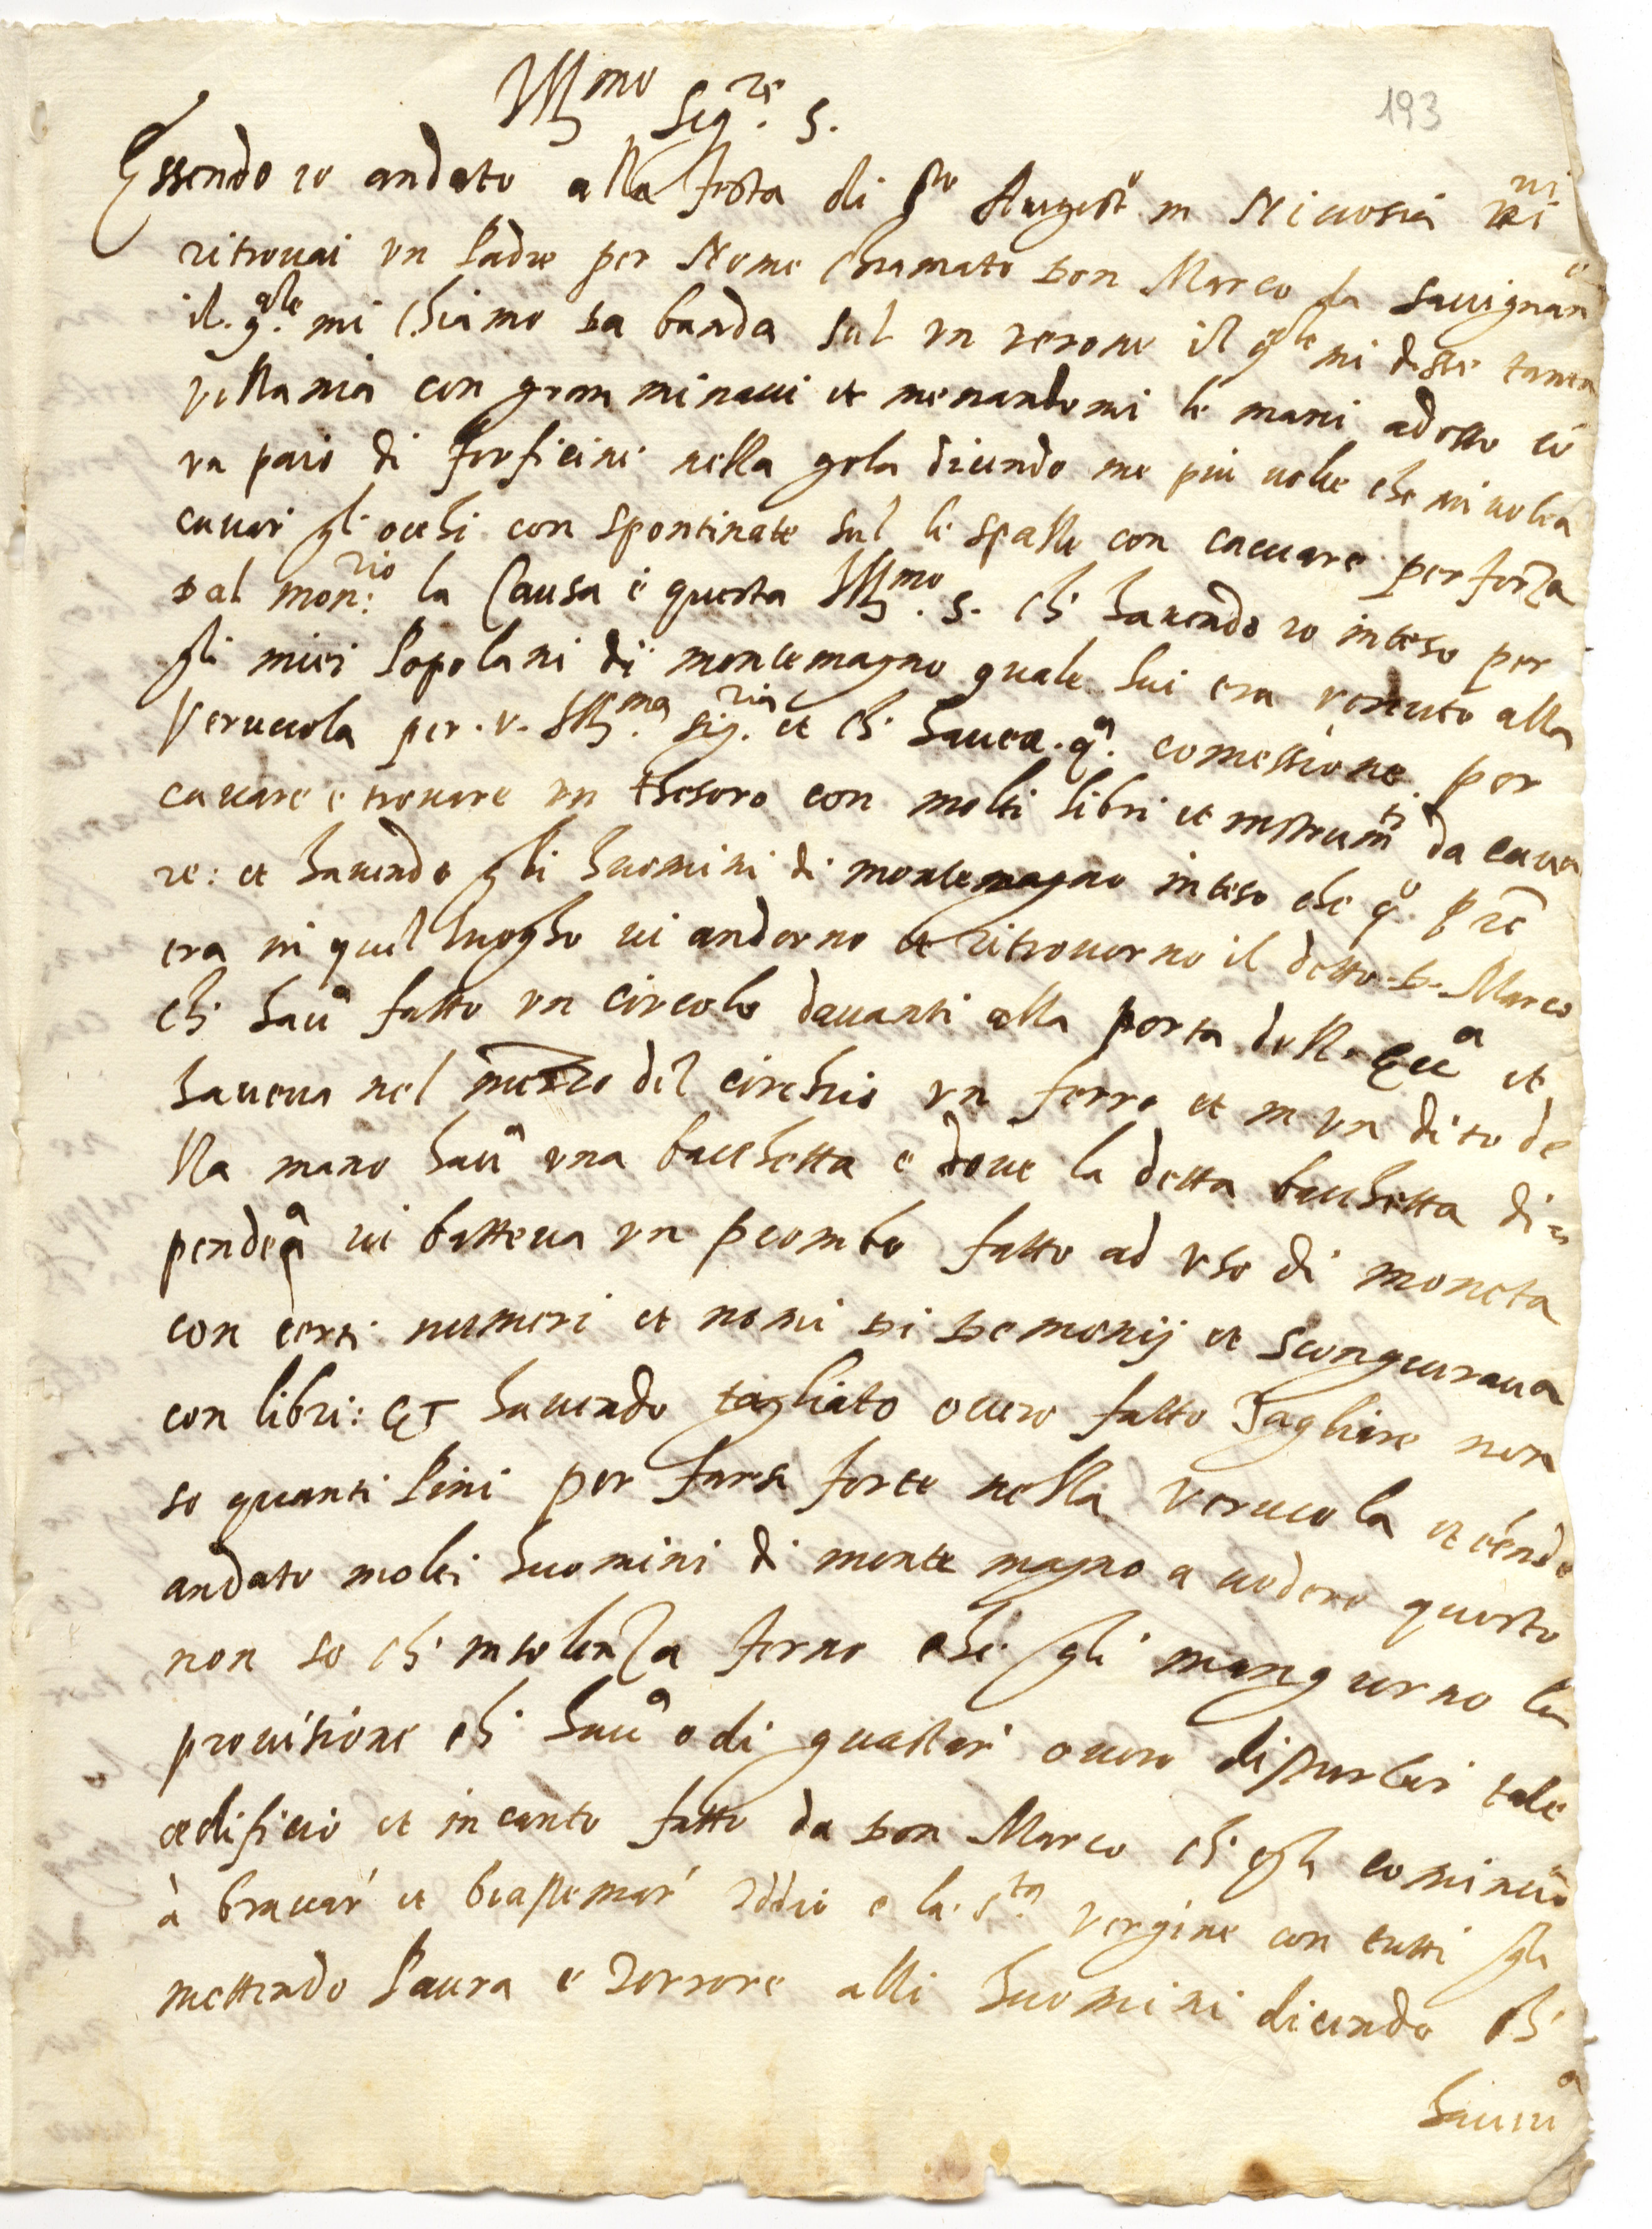 193
Ill.mo Sig.re S.
Essendo io andato alla festa di S.to August.o in Nicosia vi
ritrovai un Padre per Nome Chiamato Don Marco da Savignan.o
il q.ale mi Chiamo da banda sul un verone il q.ale mi disse tanta
villania con gran minacci et menandomi le mani adosso cō
un paio di forficine nella gola dicendo me più volte che mi volea
cavar gl'occhi con spontinate sul le spalle con caccare per forza
dal mon:rio la Causa è questa Ill.mo S. ch' havendo io inteso per
gli miei Popolani di montemagno quale lui era venuto alla
Veruccola per. v. Ill.ma Sig.ria et ch' havea. q.a comessione per
cavare e trovare un thesoro con molti libri et instrum.ti da cava
re: et havendo gli huomini di montemagno inteso che q.o p̄re
era in quel luogho vi andorno et ritrovorno il detto D. Marco
ch' hav.a fatto un circolo davanti alla porta della Ecc.a et
haveva nel mezzo del circhio un ferro et in un dito de
lla mano hav.a una bacchetta e dove la detta bacchetta di=
pendea vi batteva un piombo fatto ad uso di moneta
con certi numeri et nomi di Demonij et scongiurava
con libri: ET havendo tagliato overo fatto Tagliare non
so quanti Pini per farsi forte nella Verucola et esendo
andato molti huomini di monte magno a vedere questo
non so ch' insolenza ferno che gli mangiorno la
provisione ch' hav.a o di guastar' overo disturbar tale
edificio et incanto fatto da Don Marco ch' egli cominciò
à bravar' et biastemar' Iddio e la S.ta Vergine con tutti gli
mettendo Paura e Terrore alli huomini dicendo ch'
havev.a